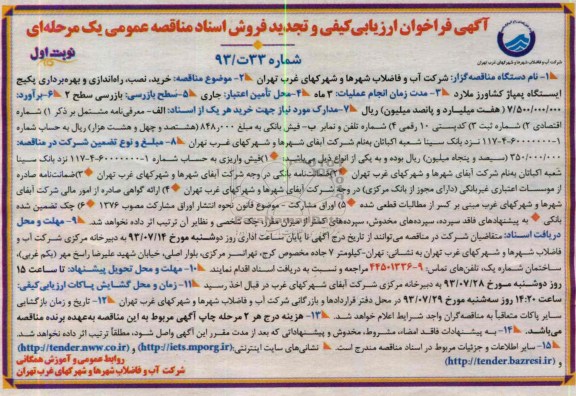 آگهی فراخوان ارزیابی کیفی و تجدید فروش اسناد مناقصه عمومی یک مرحله‌ای
شماره ۳۳ت/۹۳
نوبت اول
شرکت آب و فاضلاب شهرها و شهرکهای غرب تهران
۱- نام دستگاه مناقصه‌گزار: شرکت آب و فاضلاب شهرها و شهرکهای غرب تهران ۲- موضوع مناقصه: خرید، نصب، راه‌اندازی و بهره‌برداری پکیج
ایستگاه پمپاژ کشاورز ملارد ۳- مدت زمان انجام عملیات: ۳ ماه ۴- محل تأمین اعتبار: جاری ۵- سطح بازرسی: بازرسی سطح ۲ ۶- برآورد:
۷/۵۰۰/۰۰۰/۰۰۰ (هفت میلیارد و پانصد میلیون) ریال ۷- مدارک مورد نیاز جهت خرید هر یک از اسناد: الف- معرفی‌نامه مشتمل بر ذکر ۱) شماره
اقتصادی ۲) شماره ثبت ۳) کدپستی ۱۰ رقمی ۴) شماره تلفن و نمابر ب- فیش بانکی به مبلغ ۸۴۸/۰۰۰ (هشتصد و چهل و هشت هزار) ریال به حساب شماره
۱-۶۰۰۰۰۰۰-۴-۱۱۷ نزد بانک سینا شعبه اکباتان به‌نام شرکت آبفای شهرها و شهرکهای غرب تهران ۸- مبلغ و نوع تضمین شرکت در مناقصه:
۳۵۰/۰۰۰/۰۰۰ (سیصد و پنجاه میلیون) ریال بوده و به یکی از انواع ذیل می‌باشد: ۱) فیش واریزی به حساب شماره ۱-۶۰۰۰۰۰۰-۴-۱۱۷ نزد بانک سینا
شعبه اکباتان به‌نام شرکت آبفای شهرها و شهرکهای غرب تهران ۲) ضمانت‌نامه بانکی در وجه شرکت آبفای شهرها و شهرکهای غرب تهران ۳) ضمانت‌نامه صادره
از موسسات اعتباری غیربانکی (دارای مجوز از بانک مرکزی) در وجه شرکت آبفای شهرها و شهرکهای غرب تهران ۴) ارائه گواهی صادره از امور مالی شرکت آبفای
شهرها و شهرکهای غرب مبنی بر کسر از مطالبات قطعی شده ۵) اوراق مشارکت - موضوع قانون نحوه انتشار اوراق مشارکت مصوب ۱۳۷۶ ۶) چک تضمین شده
بانکی به پیشنهادهای فاقد سپرده، سپرده‌های مخدوش، سپرده‌های کمتر از میزان مقرر، چک شخصی و نظایر آن ترتیب اثر داده نخواهد شد. ۹- مهلت و محل
دریافت اسناد: متقاضیان شرکت در مناقصه می‌توانند از تاریخ درج آگهی تا پایان ساعت اداری روز دوشنبه مورخ ۹۳/۰۷/۱۴ به دبیرخانه مرکزی شرکت آب و
فاضلاب شهرها و شهرکهای غرب تهران به نشانی: تهران-کیلومتر ۷ جاده مخصوص کرج، تهرانسر مرکزی، بلوار اصلی، خیابان شهید علیرضا راسخ مهر (یکم غربی)،
ساختمان شماره یک، تلفن‌های تماس: ۹-۴۴۵۰۱۳۳۶ مراجعه و نسبت به دریافت اسناد اقدام نمایند ۱۰- مهلت و محل تحویل پیشنهاد: تا ساعت ۱۵
روز دوشنبه مورخ ۹۳/۰۷/۲۸ به دبیرخانه مرکزی شرکت آبفای شهرها و شهرکهای غرب تهران در قبال اخذ رسید ۱۱- زمان و محل گشایش پاکات ارزیابی کیفی:
ساعت ۱۴:۲۰ روز سه‌شنبه مورخ ۹۳/۰۷/۲۹ در محل دفتر قراردادها و بازرگانی شرکت آب و فاضلاب شهرها و شهرکهای غرب تهران ۱۲- تاریخ و زمان بازگشایی
سایر پاکات متعاقباً به مناقصه‌گران واجد شرایط اعلام خواهد شد. ۱۳- هزینه درج هر ۲ مرحله چاپ آگهی مربوط به این مناقصه به‌عهده برنده مناقصه
می‌باشد. ۱۴- به پیشنهادات فاقد امضاء، مشروط، مخدوش و پیشنهاداتی که بعد از مدت مقرر این آگهی واصل شود، مطلقاً ترتیب اثر داده نخواهد شد.
۱۵- سایر اطلاعات و جزئیات مربوط در اسناد مناقصه مندرج است. نشانی‌های سایت اینترنتی: (http://iets.mporg.ir) و (http://tender.nww.co.ir)
و (http://tender.bazresi.ir)
روابط عمومی و آموزش همگانی
شرکت آب و فاضلاب شهرها و شهرکهای غرب تهران